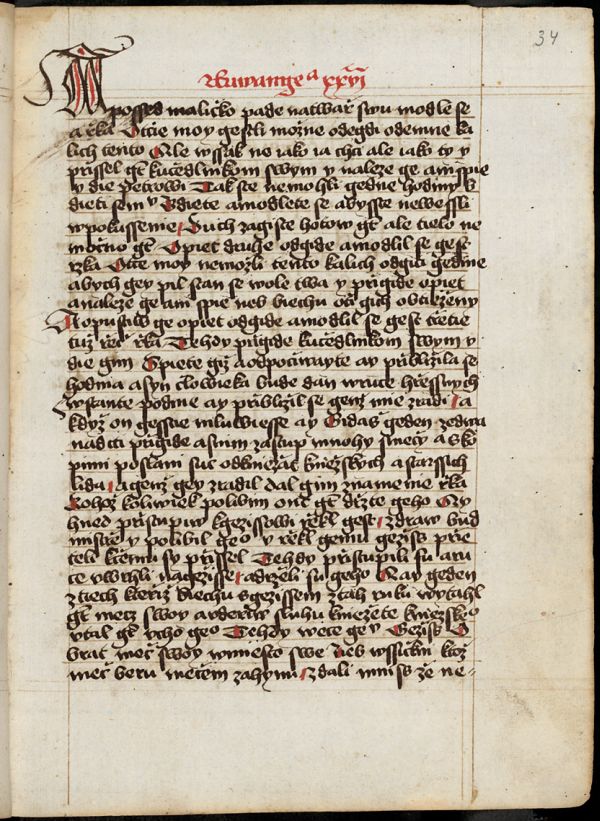 34
Ewangel̄a xxvi
A possed maliczko pade natwarz swu modle se
a rzka Otcze moy gestli mozne odegdi odemne ka
lich tento Ale wssak ne iako ia chci ale iako ty y
przissel gt kuczedlnikom swym y naleze ge ani spie
y die petrowi Tak ste nemohli gedne hodiny b
dieti sem Bdiete amodlete se abysste newessli
wpokussenie Duch zagiste hotow gt ale tielo ne
moczno gt Opiet druhe odgide amodlil se gest
rzka Otcze moy nemozli tento kalich odgiti gedine
abych gey pil stan se wole twa y przigide opiet
analeze ge ani spie neb biechu oczi gich obtiezeny
Aopustiw ge opiet odgide amodlil se gest trzetie
tuz rzecz rzka Tehdy przigide kuczedlnikom swym y
die gim Spiete giz aodpocziwayte ay przibliżila se
hodina asyn czlowieka bude dan wruce hrzessnych
wstante podme ay przibliżil se genz mie zradi a
kdyz on gesstie mluwiesse ay Gidas geden zedwa
nadcti przigide asnim zastup mnohy smeczy asko
pimi poslani suc odkniezat kniezskych astarssich
lidu agenz gey zradil dal gim znamenie rzka
Kohoz koliwiek polibim ont gt drzte geho Ay
hned przistupiw kgezissowi rzekl gest zdraw bud
mistrze y polibil geo y rzekl gemu geziss przie
teli kczemu sy przissel Tehdy przistupili su aru
ce wrhli nagezisse adrzeli su geho A ay geden
ztiech kterziz biechu sgezissem ztah ruku wytahl
gt mecz swoy auderziw sluhu kniezete kniezskeo
utal gt ucho geo Tehdy wece gey Geziss O
brat mecz swoy wmiesto swe neb wssickni ktoz
mecz beru meczem zahynu zdali mnis ze ne-